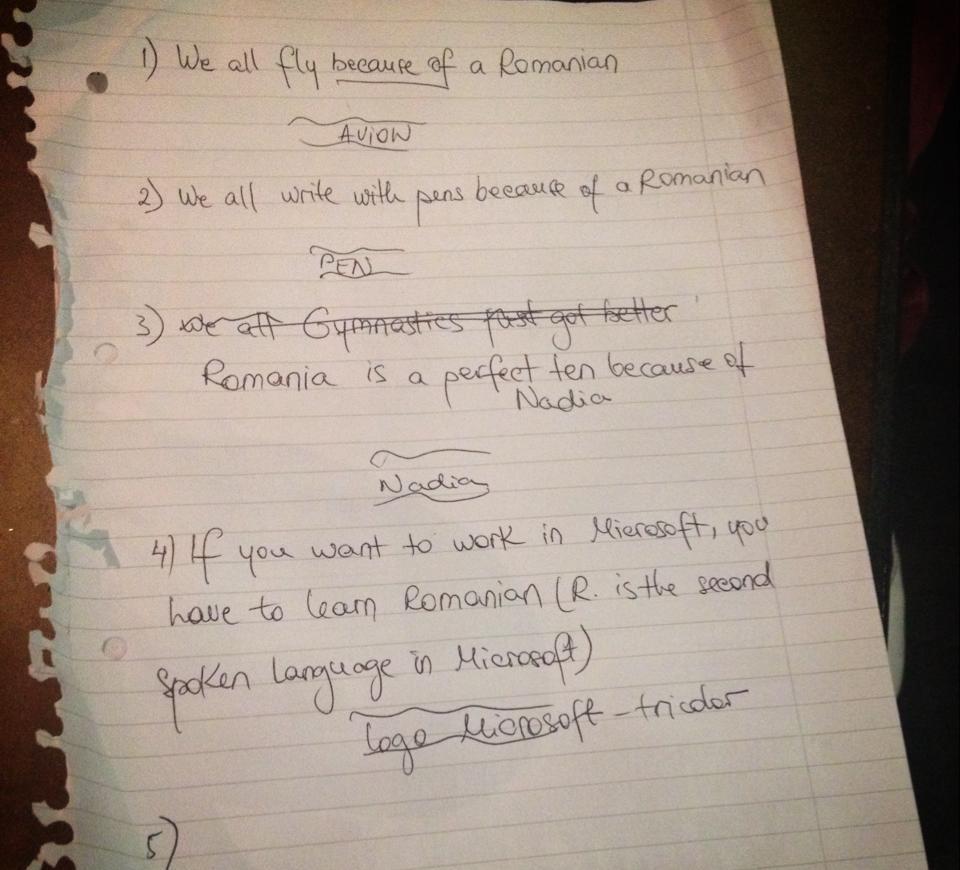 1) We all fly because of a Romanian
AVION
2) We all write with pens because of a Romanian
PEN
3) We all Gymnastics just got better
Romania is a perfect ten because of
Nadia
Nadia
4) If you want to work in Microsoft, you
have to learn Romanian (R. is the second
spoken language in Microsoft)
logo Microsoft - tricolor
5)